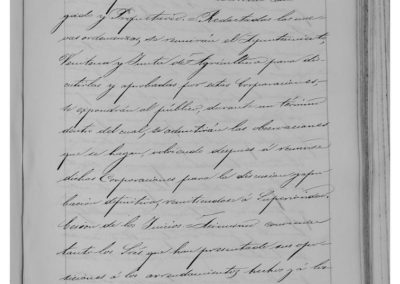 y Proyectadas. Redactadas las nue-
vas ordenanzas, se reunirán el Ayuntamiento,
Ventena y Junta de Agricultura para dis-
cutirlas y aprobadas por estas Corporaciones,
se expondrán al público, durante un término
dentro del cual, se admitirán las observaciones
que se hagan, volviendo despues á reunirse
dichas Corporaciones para la discusion y apro-
bación difinitiva, remitiendose á Superior
de los Juicios
tanto los Srés que han presentado sus opo-
siciones á los arrendamientos, hechos y á los